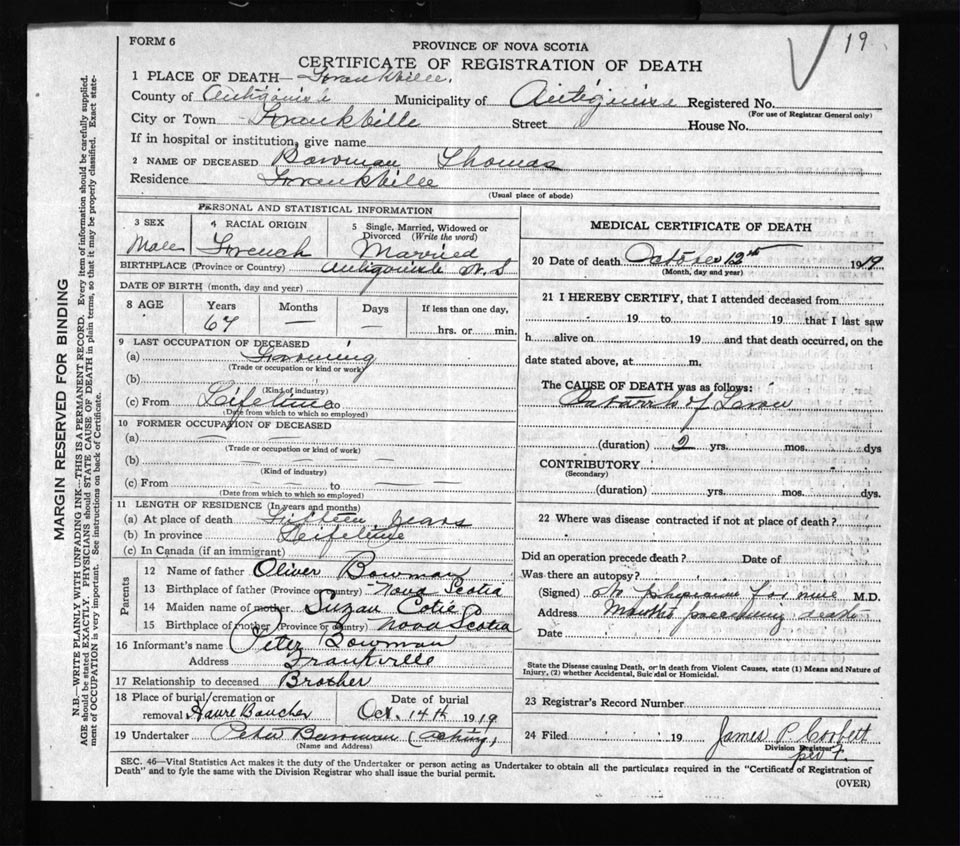 19
FORM 6
PROVINCE OF NOVA SCOTIA
CERTIFICATE OF REGISTRATION OF DEATH
1 PLACE OF DEATH— Frankville.
County of Antigonish Municipality of Antigonish Registered No.
(For use of Registrar General only)
City or Town Frankville Street House No.
If in hospital or institution, give name
2 NAME OF DECEASED Bowman Thomas
Residence Frankville
(Usual place of abode)
PERSONAL AND STATISTICAL INFORMATION
3 SEX 4 RACIAL ORIGIN 5 Single, Married, Widowed or
Divorced (Write the word)
Male French Married
BIRTHPLACE (Province or Country) Antigonish N.S
DATE OF BIRTH (month, day and year)
8 AGE Years Months Days If less than one day,
67 — — hrs. or min.
9 LAST OCCUPATION OF DECEASED
(a) Farming
(Trade or occupation or kind or work)
(b)
(Kind of industry)
(c) From Lifetime to
(Date from which to which so employed)
10 FORMER OCCUPATION OF DECEASED
(a) — —
(Trade or occupation or kind of work)
(b) — —
(Kind of industry)
(c) From — to —
(Date from which to which so employed)
11 LENGTH OF RESIDENCE (In years and months)
(a) At place of death Fifteen years
(b) In province Lifetime
(c) In Canada (if an immigrant) — —
Parents
12 Name of father Oliver Bowman
13 Birthplace of father (Province or country) Nova Scotia
14 Maiden name of mother Suzan Cotie
15 Birthplace of mother (Province or country) Nova Scotia
16 Informant's name Peter Bowman
Address Frankville
17 Relationship to deceased Brother
18 Place of burial/cremation or Date of burial
removal Havre Boucher Oct. 14th 1919
19 Undertaker Peter Bowman (acting)
(Name and Address)
MEDICAL CERTIFICATE OF DEATH
20 Date of death October 12th 1919
(Month, day and year)
21 I HEREBY CERTIFY, that I attended deceased from
19 to 19 that I last saw
h alive on 19 and that death occurred, on the
date stated above, at m.
The CAUSE OF DEATH was as follows:
of
(duration) 2 yrs. mos. dys
CONTRIBUTORY
(Secondary)
(duration) yrs. mos. dys.
22 Where was disease contracted if not at place of death?
Did an operation precede death? Date of
Was there an autopsy?
(Signed) No physician for nine M.D.
Address Months preceding death
Date
State the Disease causing Death, or in death from Violent Causes, state (1) Means and Nature of
Injury, (2) whether Accidental, Suicidal or Homicidal.
23 Registrar's Record Number
24 Filed 19 James P Corbett
Division Registrar
per
SEC. 46—Vital Statistics Act makes it the duty of the Undertaker or person acting as Undertaker to obtain all the particulars required in the "Certificate of Registration of
Death" and to fyle the same with the Division Registrar who shall issue the burial permit.
(OVER)
MARGIN RESERVED FOR BINDING
N.B.—WRITE PLAINLY WITH UNFADING INK—THIS IS A PERMANENT RECORD. Every item of information should be carefully supplied.
AGE should be stated EXACTLY. PHYSICIANS should STATE CAUSE OF DEATH in plain terms, so that it may be properly classified. Exact state-
ment of OCCUPATION is very important. See instructions on back of Certificate.